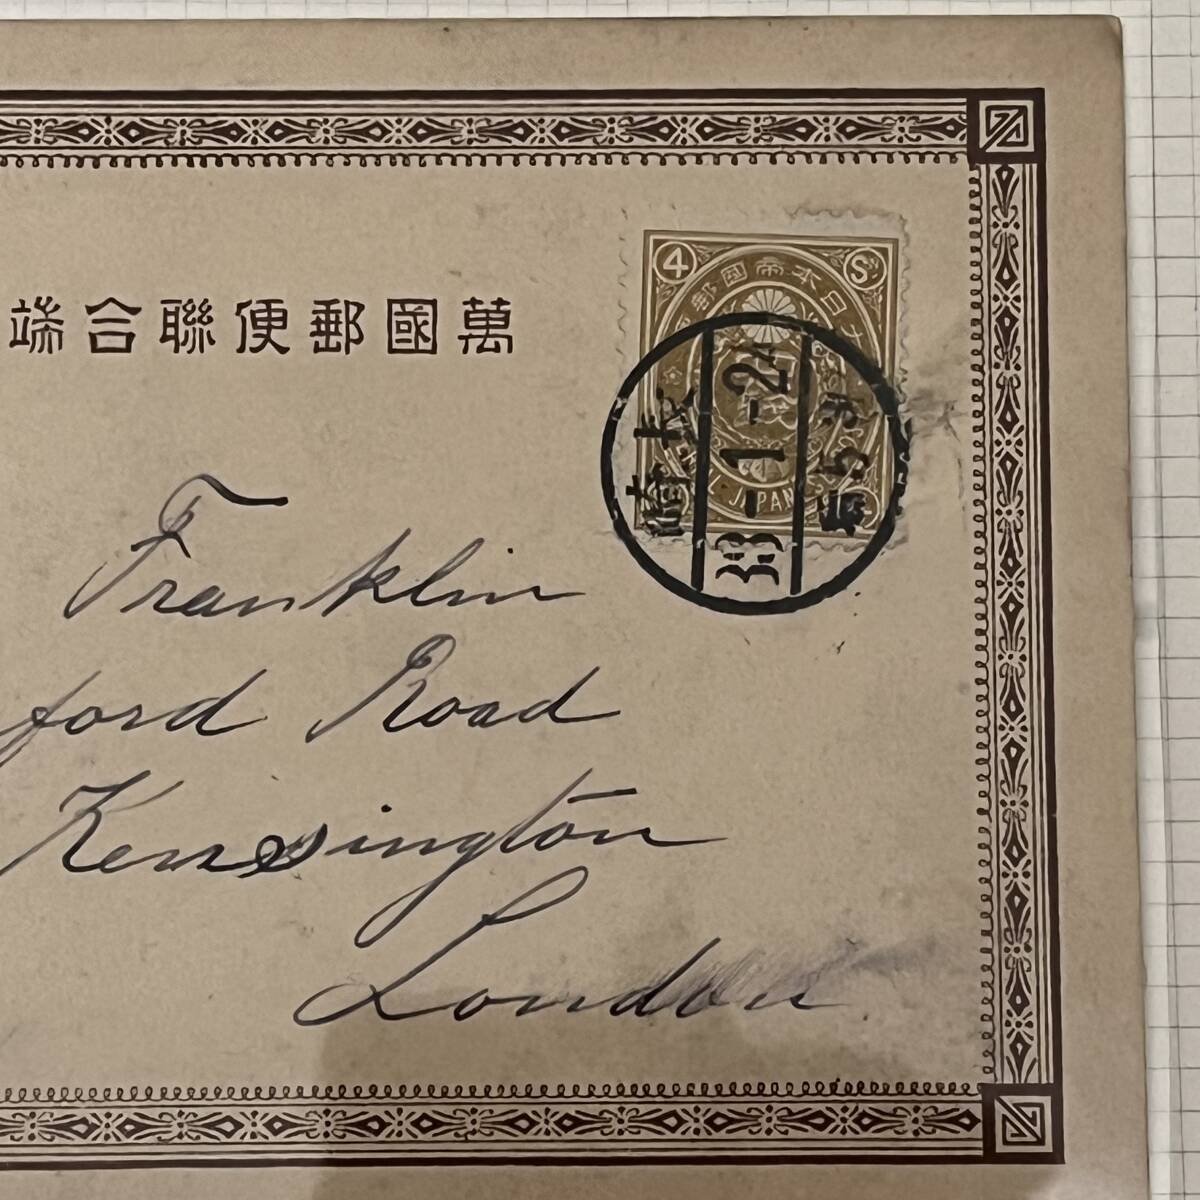 萬國郵便聯合端
4 S
大日本帝國郵
JAPAN
長崎
33-1-2
Franklin
ford Road
Kensington
London